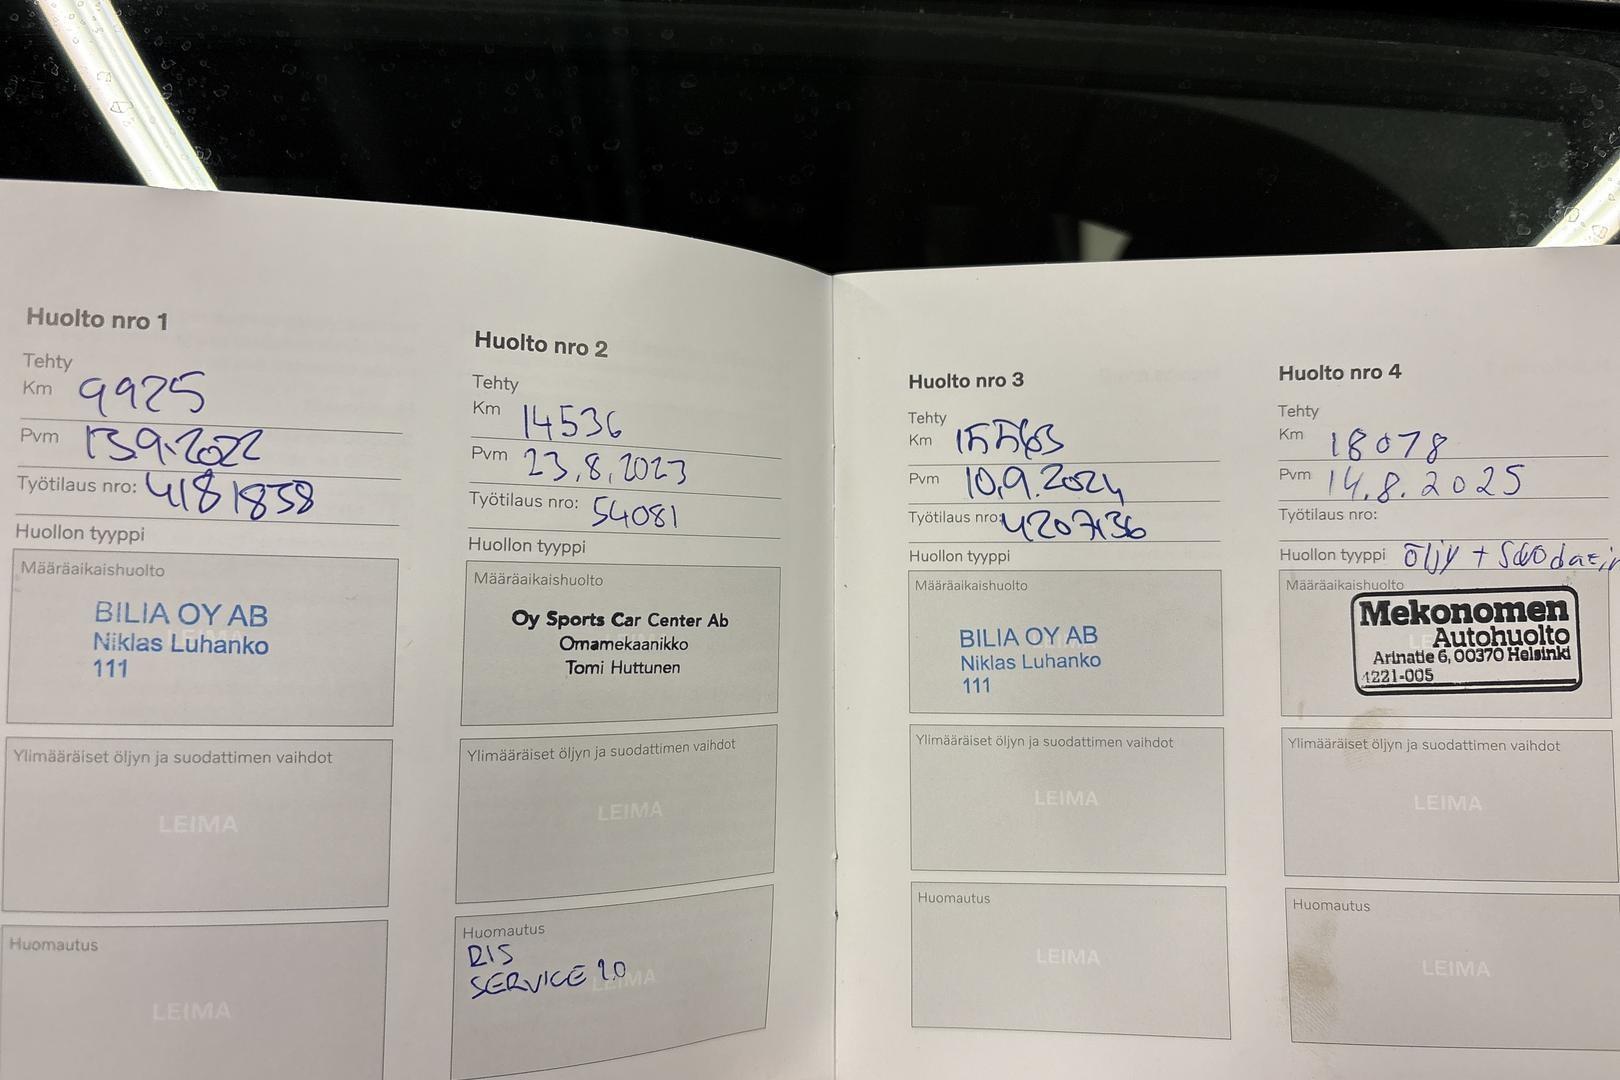 Huolto nro 1
Tehty
Km 9925
Pvm 13.9.2022
Työtilaus nro: 4181838
Huollon tyyppi
Määräaikaishuolto
BILIA OY AB
Niklas Luhanko
111
Ylimääräiset öljyn ja suodattimen vaihdot
LEIMA
Huomautus
LEIMA
Huolto nro 2
Tehty
Km 14536
Pvm 23.8.2023
Työtilaus nro: 54081
Huollon tyyppi
Määräaikaishuolto
Oy Sports Car Center Ab
Omamekaanikko
Tomi Huttunen
Ylimääräiset öljyn ja suodattimen vaihdot
LEIMA
Huomautus
SERVICE 2.0
LEIMA
Huolto nro 3
Tehty
Km 15563
Pvm 10.9.2024
Työtilaus nro: 4207136
Huollon tyyppi
Määräaikaishuolto
BILIA OY AB
Niklas Luhanko
111
Ylimääräiset öljyn ja suodattimen vaihdot
LEIMA
Huomautus
LEIMA
Huolto nro 4
Tehty
Km 18078
Pvm 14.8.2025
Työtilaus nro:
Huollon tyyppi öljy +
Määräaikaishuolto
Mekonomen
Autohuolto
Arinatie 6, 00370 Helsinki
4221-005
Ylimääräiset öljyn ja suodattimen vaihdot
LEIMA
Huomautus
LEIMA